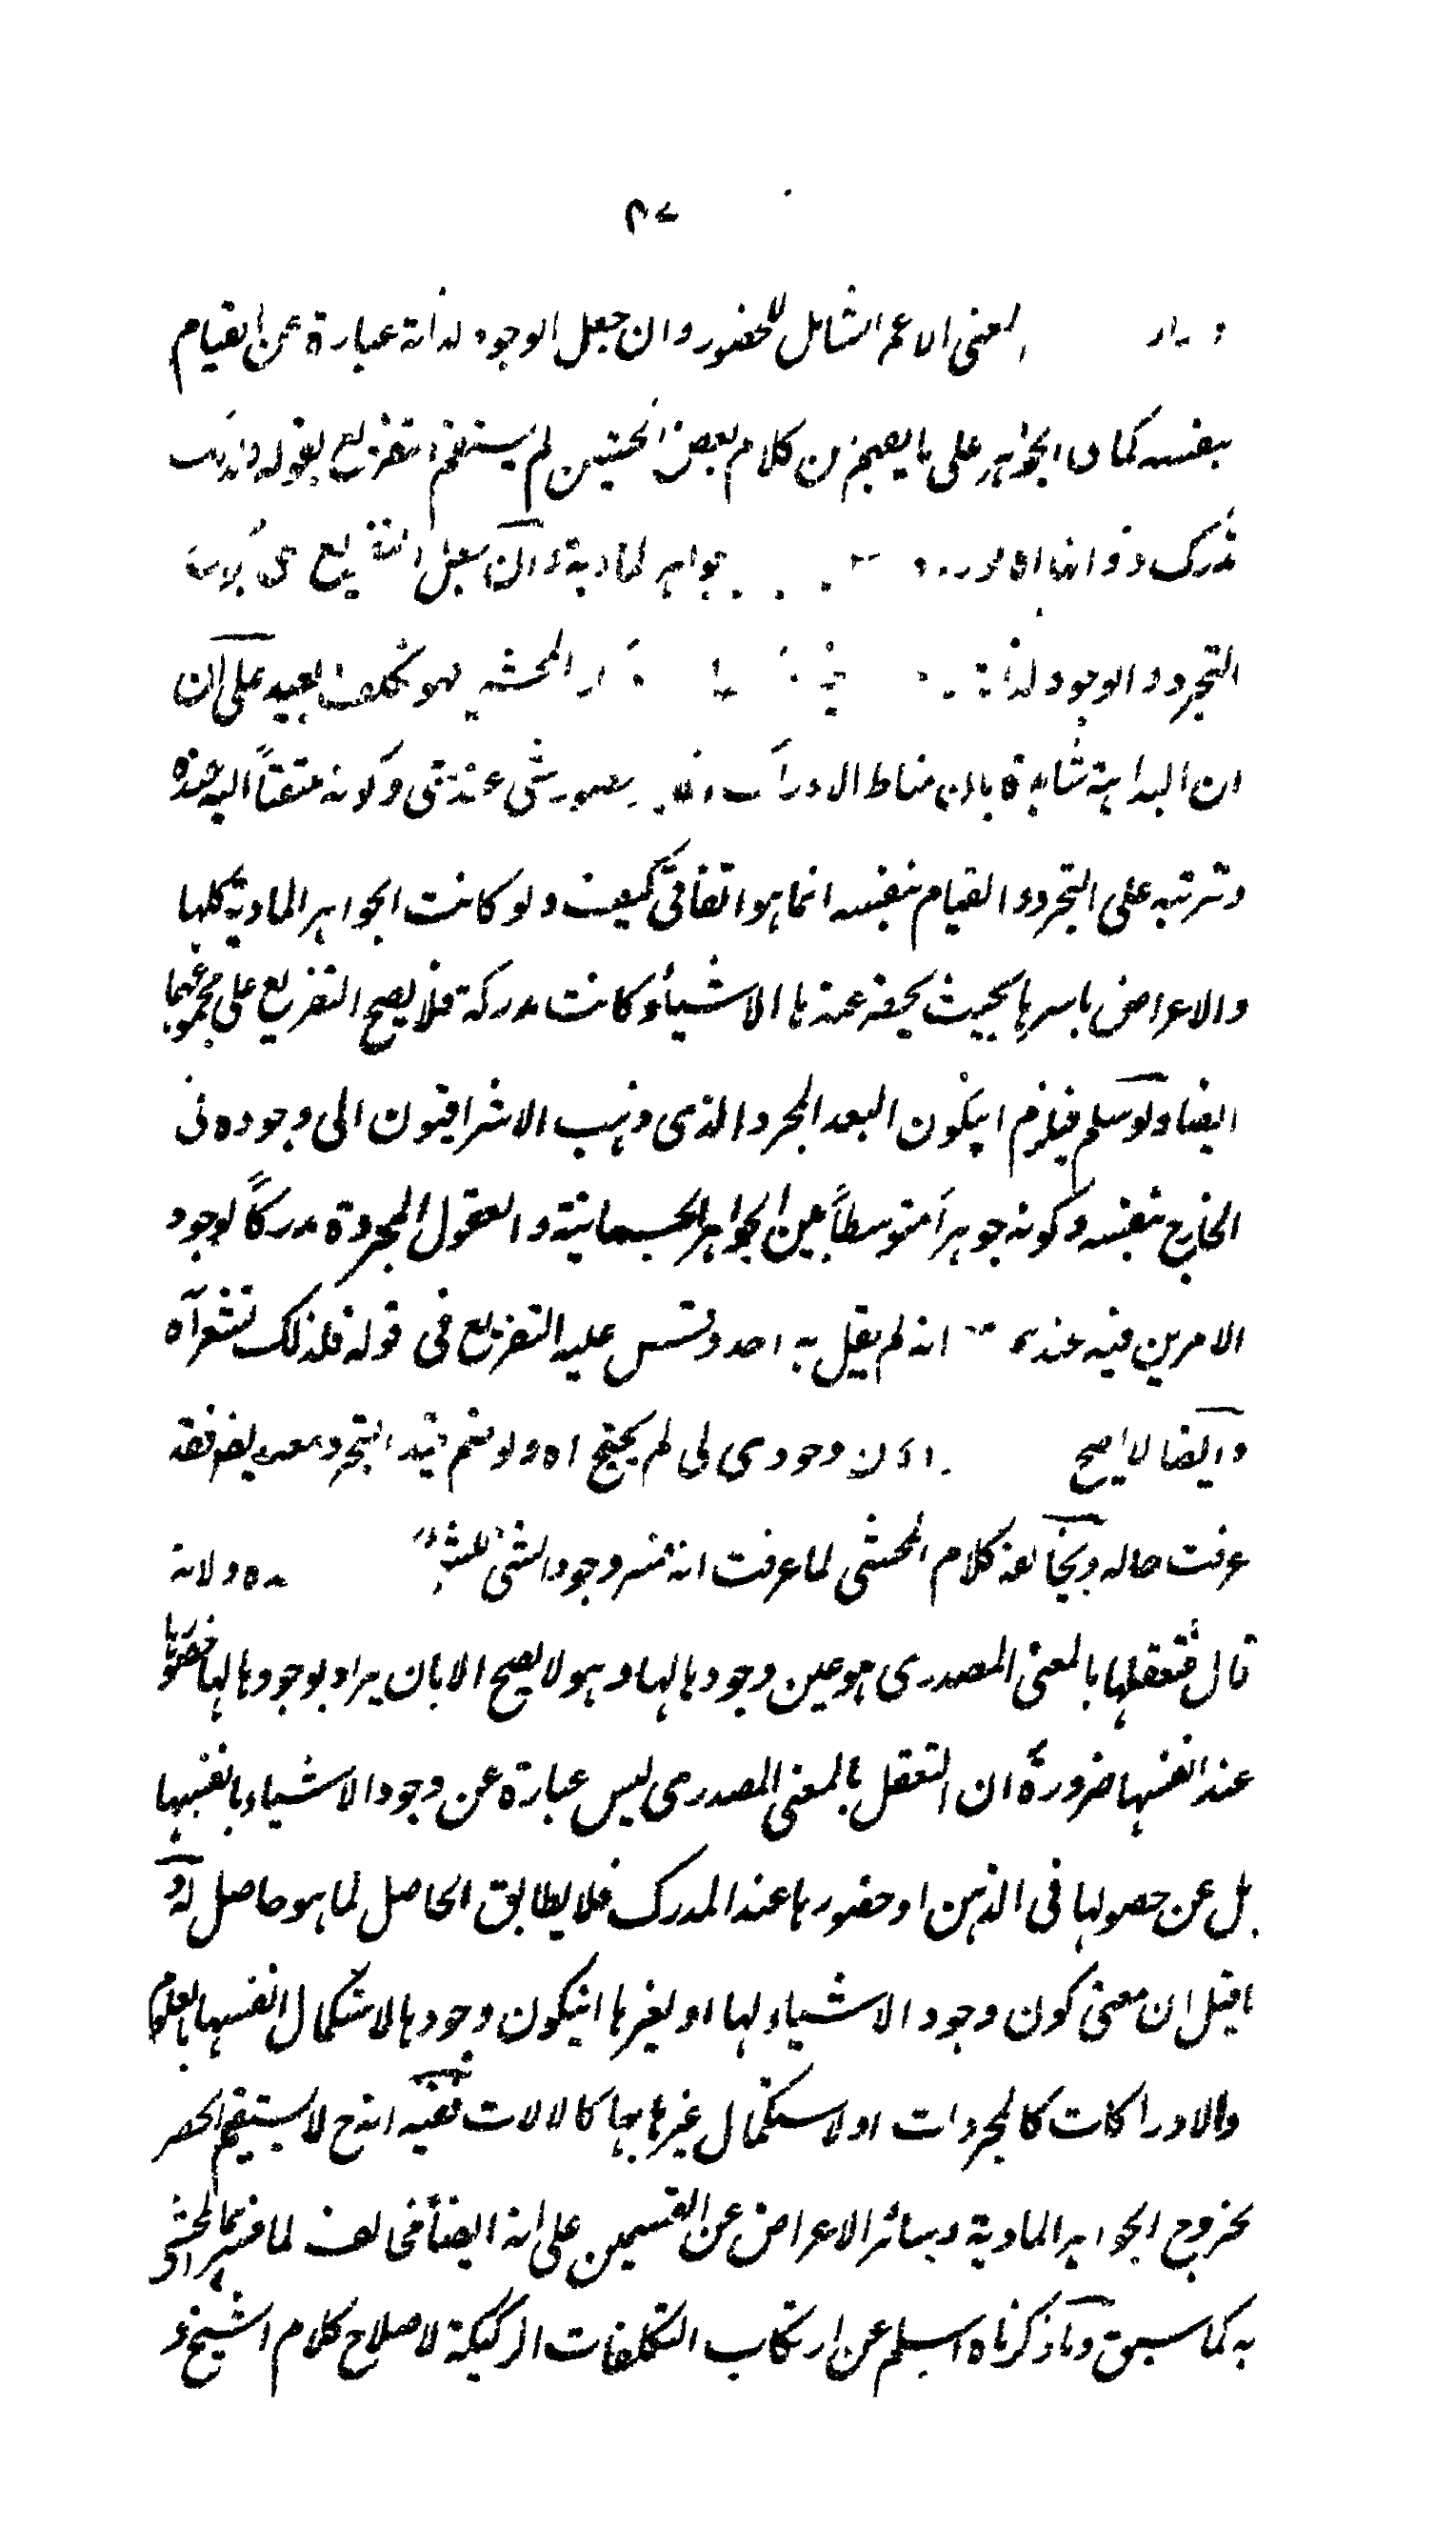 ٤٧
المعنى الاعم الشامل للحضور وان جعل الوجود لذاته عبارة عن القيام
بنفسه كما الجواهر على ما يفهم من كلام بعض المحشين لم يستقم التفريع بقوله
تدرك ذواتها اه جواهر المادية وان جعل التفريع على
التجرد والوجود لذاته المحشى فهو تكلف بعيد على ان
ان البداهة شاهدة بان مناط الادراك حضور شئ عند شئ وكونه متفقاً اليه عنده
وترتبه على التجرد والقيام بنفسه انما هو اتفاقى كيف ولو كانت الجواهر المادية كلها
والاعراض باسرها بحيث يحضر عندها الاشياء كانت مدركة فلا يصح التفريع على مجموعهما
ايضا ولو سلم فيلزم ان يكون البعد المجرد الذى ذهب الاشراقيون الى وجوده فى
الخارج بنفسه وكونه جوهراً متوسطاً بين الجواهر الجسمانية والعقول المجردة مدركاً لوجود
الامرين فيه عند انه لم يقل به احد وقس عليه التفريع فى قوله فلذلك نشعر آه
وايضا لا يصح كان وجودى لى لم يحتج اه ولو ضم قيد التجرد معه يضر فقد
عرفت حاله ويخالفه كلام المحشى لما عرفت انه فسر وجود الشئ للشئ ولانه
قال فتعقلها بالمعنى المصدرى هو عين وجودها لها وهو لا يصح الا بان يراد بوجودها لها حضورها
عند انفسها ضرورة ان التعقل بالمعنى المصدرى ليس عبارة عن وجود الاشياء بانفسها
بل عن حصولها فى الذهن او حضورها عند المدرك فلا يطابق الحاصل لما هو حاصل له و
ما قيل ان معنى كون وجود الاشياء لها او لغيرها ان يكون وجودها لاستكمال انفسها بالعلوم
والادراكات كالمجردات او لاستكمال غيرها بها كالالات ففيه انه ح لا يستقيم الحصر
بخروج الجواهر المادية وسائر الاعراض عن القسمين على انه ايضاً مخالف لما فسرهما المحشى
به كما سبق وما ذكرناه اسلم عن ارتكاب التكلفات الركيكة لاصلاح كلام الشيخ و